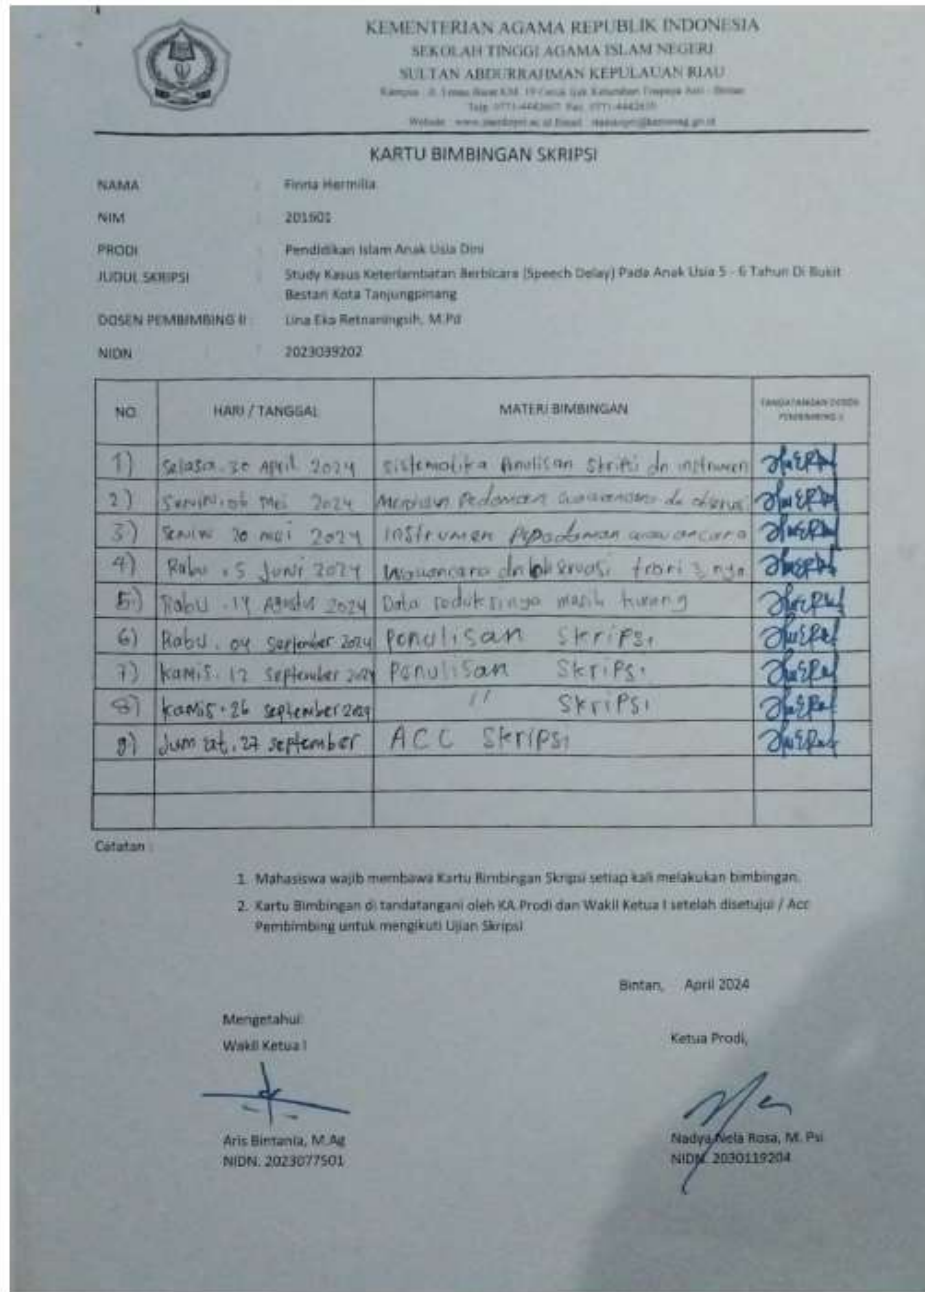 KEMENTERIAN AGAMA REPUBLIK INDONESIA
SEKOLAH TINGGI AGAMA ISLAM NEGERI
SULTAN ABDURRAHMAN KEPULAUAN RIAU
KARTU BIMBINGAN SKRIPSI
NAMA : Finna Hermilia
NIM : 201601
PRODI : Pendidikan Islam Anak Usia Dini
JUDUL SKRIPSI : Study Kasus Keterlambatan Berbicara (Speech Delay) Pada Anak Usia 5 - 6 Tahun Di Bukit
Bestari Kota Tanjungpinang
DOSEN PEMBIMBING II : Lina Eka Retnaningsih, M.Pd
NIDN : 2023039202
NO. HARI / TANGGAL MATERI BIMBINGAN TANDATANGAN DOSEN
PEMBIMBING II
1) Selasa. 30 April 2024 sistematika dn instrumen
2) Senin, 06 Mei 2024 Pedoman
3) Senin 20 mei 2024 INStrumen
4) Rabu . 5 Juni 2024 Wawancara dn observasi nya
5.) Rabu . 14 Agustus 2024 Data reduksinya masih kurang
6) Rabu . 04 September 2024 Penulisan Skripsi
7) Kamis. 12 September 2024 Penulisan Skripsi
8) kamis. 26 september 2024 // Skripsi
9) Jum'at, 27 september ACC Skripsi
Catatan :
1. Mahasiswa wajib membawa Kartu Bimbingan Skripsi setiap kali melakukan bimbingan.
2. Kartu Bimbingan di tandatangani oleh KA Prodi dan Wakil Ketua I setelah disetujui / Acc
Pembimbing untuk mengikuti Ujian Skripsi
Bintan, April 2024
Mengetahui:
Wakil Ketua I
Ketua Prodi,
Aris Bintania, M.Ag
NIDN. 2023077501
Nadya Nela Rosa, M. Psi
NIDN. 2030119204